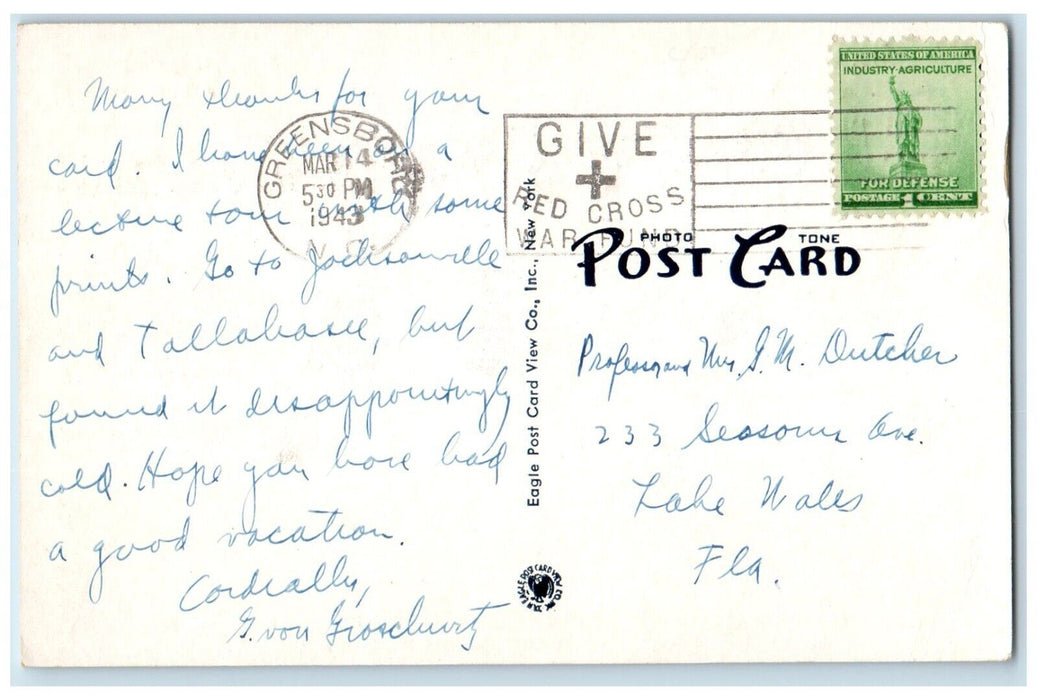 Many thanks for your
card. I have been on a
lecture tour with some
prints. Go to Jacksonville
and Tallahassee, but
found it disappointingly
cold. Hope you have had
a good vacation.
Cordially,
G. von
GREENSBORO
MAR 14
530 PM
1943
N. C.
GIVE
RED CROSS
WAR FUND
UNITED STATES OF AMERICA
INDUSTRY·AGRICULTURE
FOR DEFENSE
POSTAGE 1 CENT
PHOTO TONE
POST CARD
Eagle Post Card View Co., Inc., New York
Professor and Mrs. G. M. Dutcher
233 Ave.
Lake Wales
Fla.